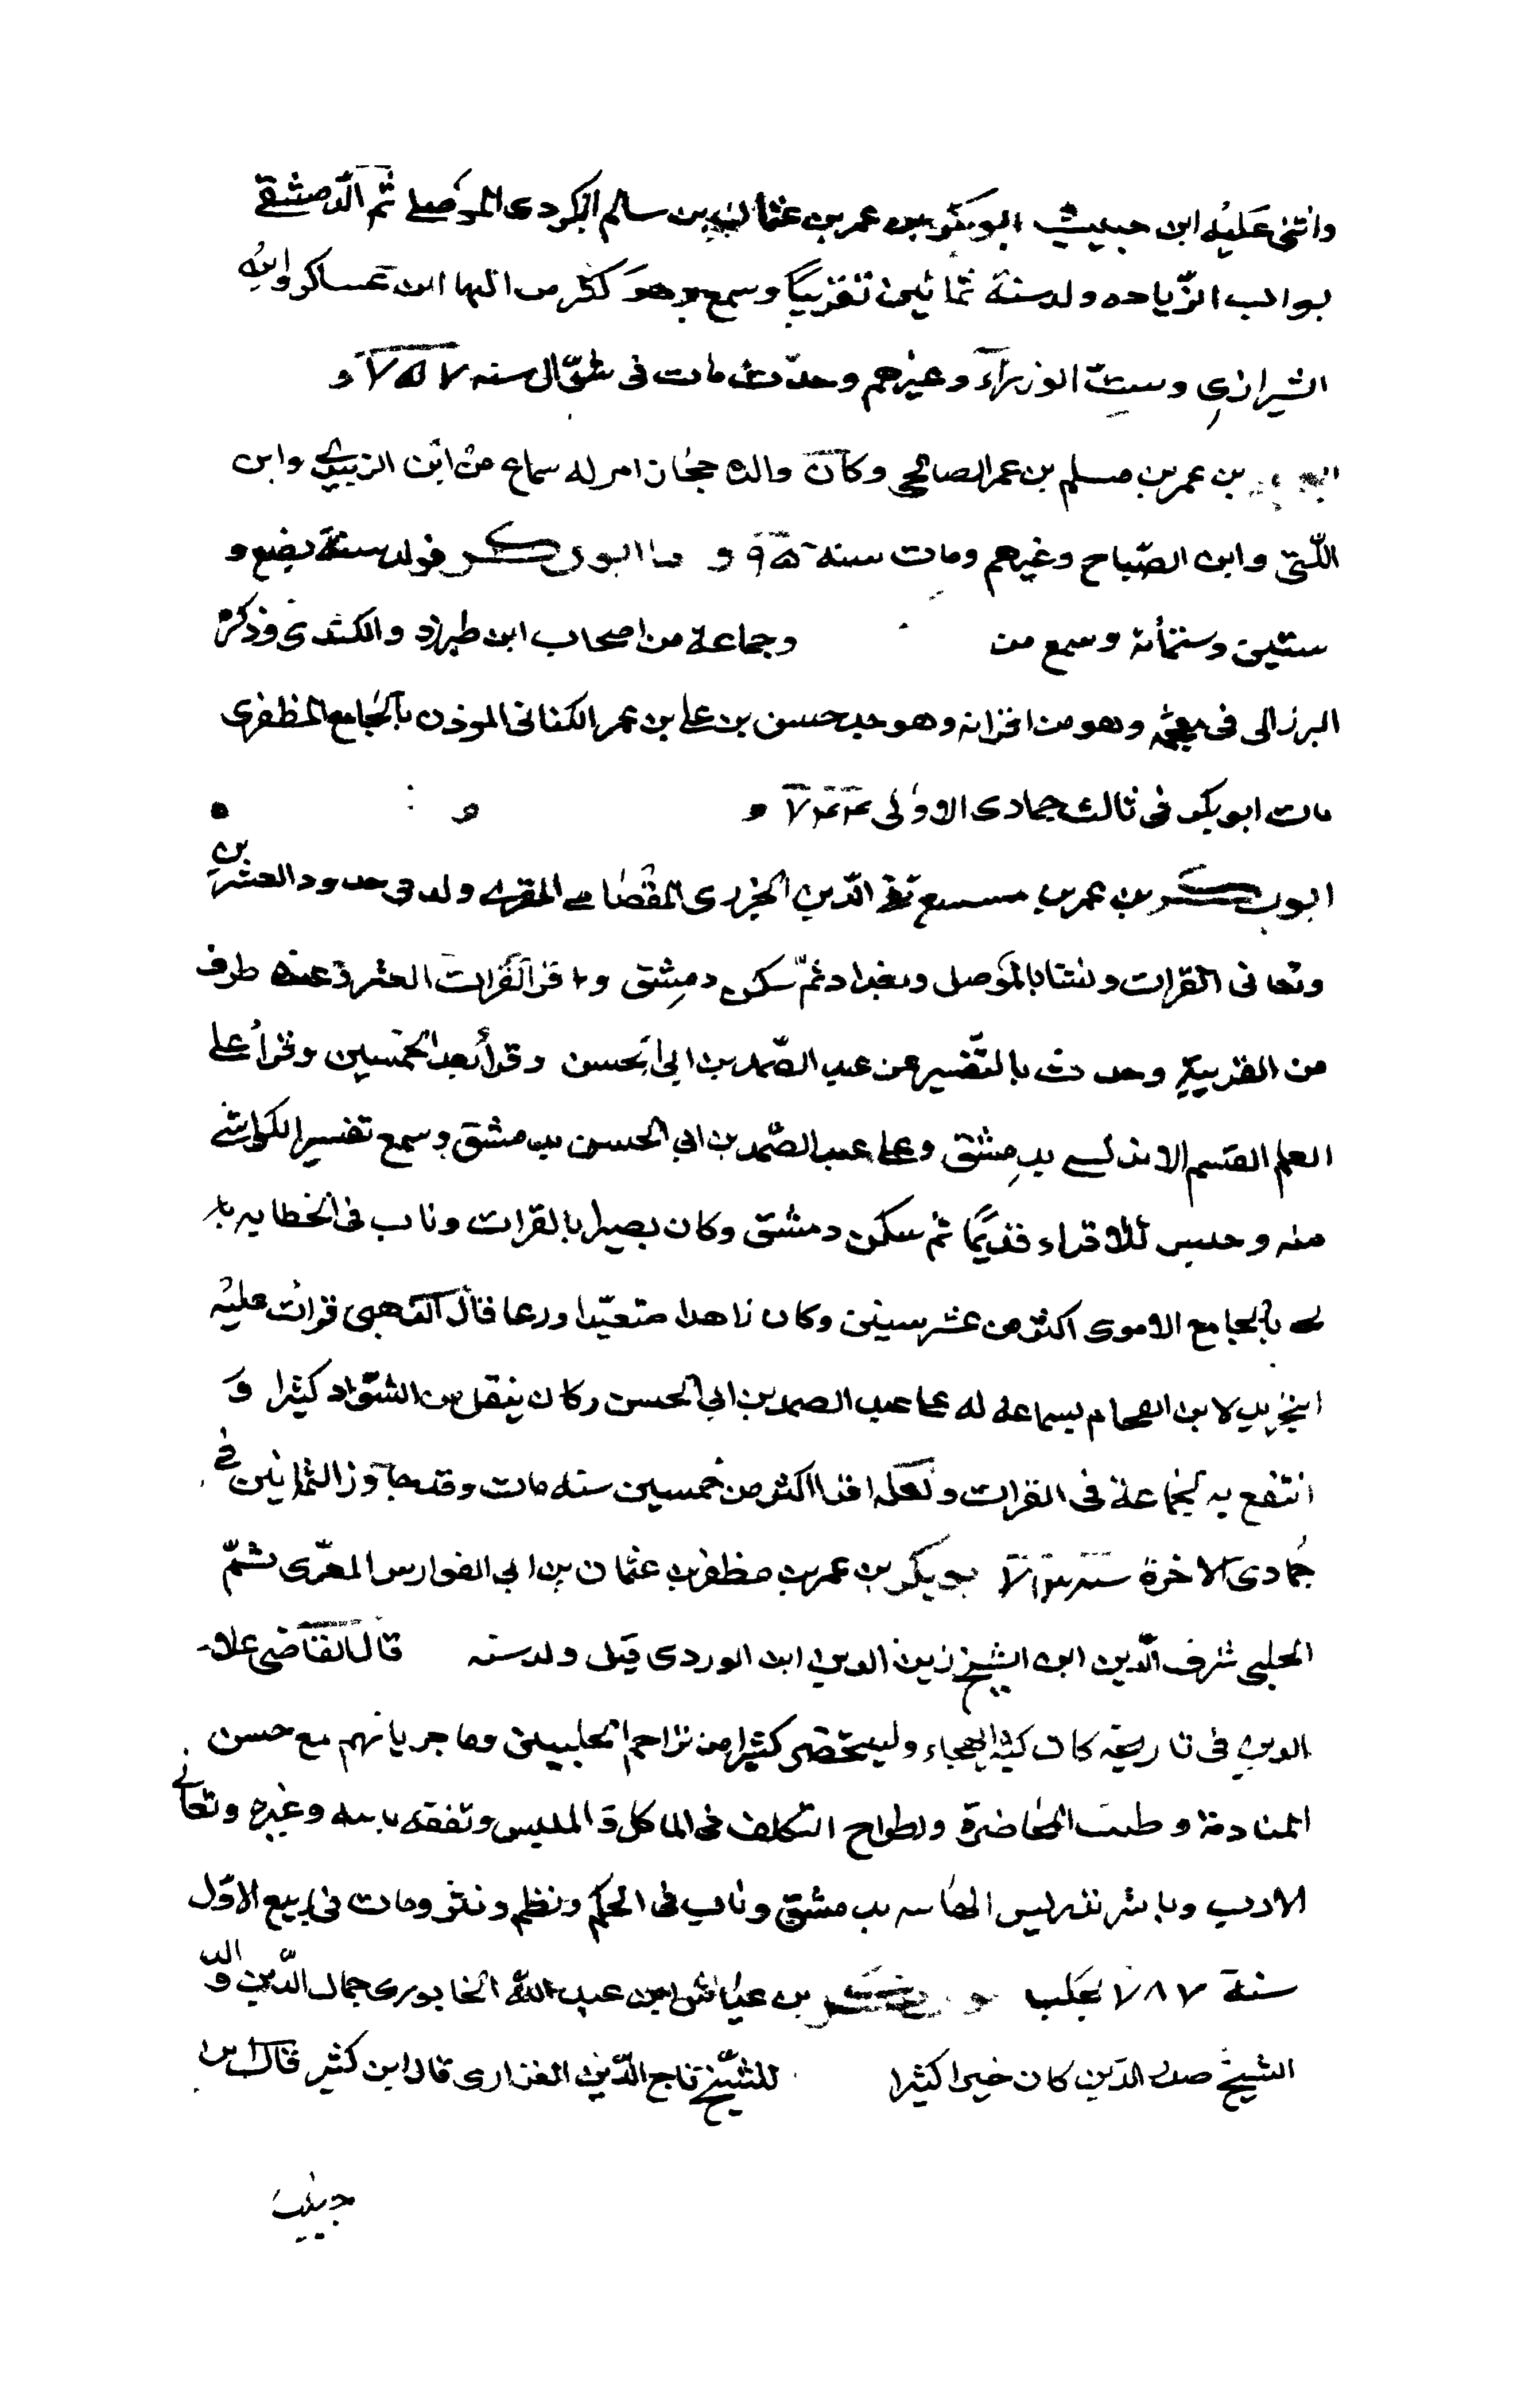 واثنى عليه ابن حبيب ابو بكر بن عمر بن عثمان بن سالم الكردى الموصلي ثم الدمشقي
بواب الزياده ولد سنة ثمانين تقريبا وسمع وهو من ابن عساكر وابن
الشيرازي وست الوزرآء وغيرهم وحدث مات فى شوال سنه ٧٥٧ و
بن عمر بن مسلم بن عمر الصالحي وكان والده حجازا مر له سماع من ابن الزبيدي وابن
اللتى وابن الصباح وغيرهم ومات سنه ٩٥ و ابو بكر فولد سنة بضع و
ستين وستمأنة وسمع من وجماعة من اصحاب ابن طبرزد والكندى وذكره
البرزالى فى معجمه وهو من اقرانه وهو جد حسن بن علي بن عمر الكنانى الموذن بالجامع المظفرى
مات ابو بكر فى ثالث جمادى الاولى ٧٤٤ و و
ابو بكر بن عمر بن تقي الدين الجزرى المقصاتي المقرى ولد فى حدود العشرين
وتعانى القرات ونشا بالموصل وبغداد ثم سكن دمشق واقرأ القرات العشر وعنده طرف
من العربية وحدث بالتفسير عن عبد الصمد بن ابي الحسن وقرأ بعد الخمسين وقرأ على
العلم القسم الاندلسي بدمشق وعلى عبد الصمد بن ابي الحسن بدمشق وسمع تفسير الكواشي
منه وجلس للاقراء قديما ثم سكن دمشق وكان بصيرا بالقرات وناب فى الخطابه
بالجامع الاموى اكثر من عشر سنين وكان زاهدا متعبدا ورعا قال الذهبى قرات عليه
التجريد لابن الفحام بسماعه له على عبد الصمد بن ابي الحسن وكان ينقل من الشواد كثيرا و
انتفع به جماعة فى القرات ولعله اقرا اكثر من خمسين سنه مات وقد جاوز الثمانين في
جمادى الاخرة سنه ٧١٣ بو بكر بن عمر بن مظفر بن عثمان بن ابي الفوارس المعرى ثم
الحلبى شرف الدين ابن الشيخ زين الدين ابن الوردى قيل ولد سنه قال القاضى علا
الدين فى تاريخه كان كثير الهجاء وليستحضر كثيرا من تراجم الحلبيين وما جرياتهم مع حسن
المنادمة وطيب المحاضرة واطراح التكلف فى الماكل والملبس وتفقه بابيه وغيره وتعانى
الادب وباشر تدريس بدمشق وناب فى الحكم ونظم ونثر ومات فى ربيع الاول
سنة ٧٨٧ بحلب بن عياش بن عبد الله الخابورى جمال الدين والد
الشيخ صدر الدين كان خيرا كثيرا للشيخ تاج الدين الفزارى قال ابن كثير قال